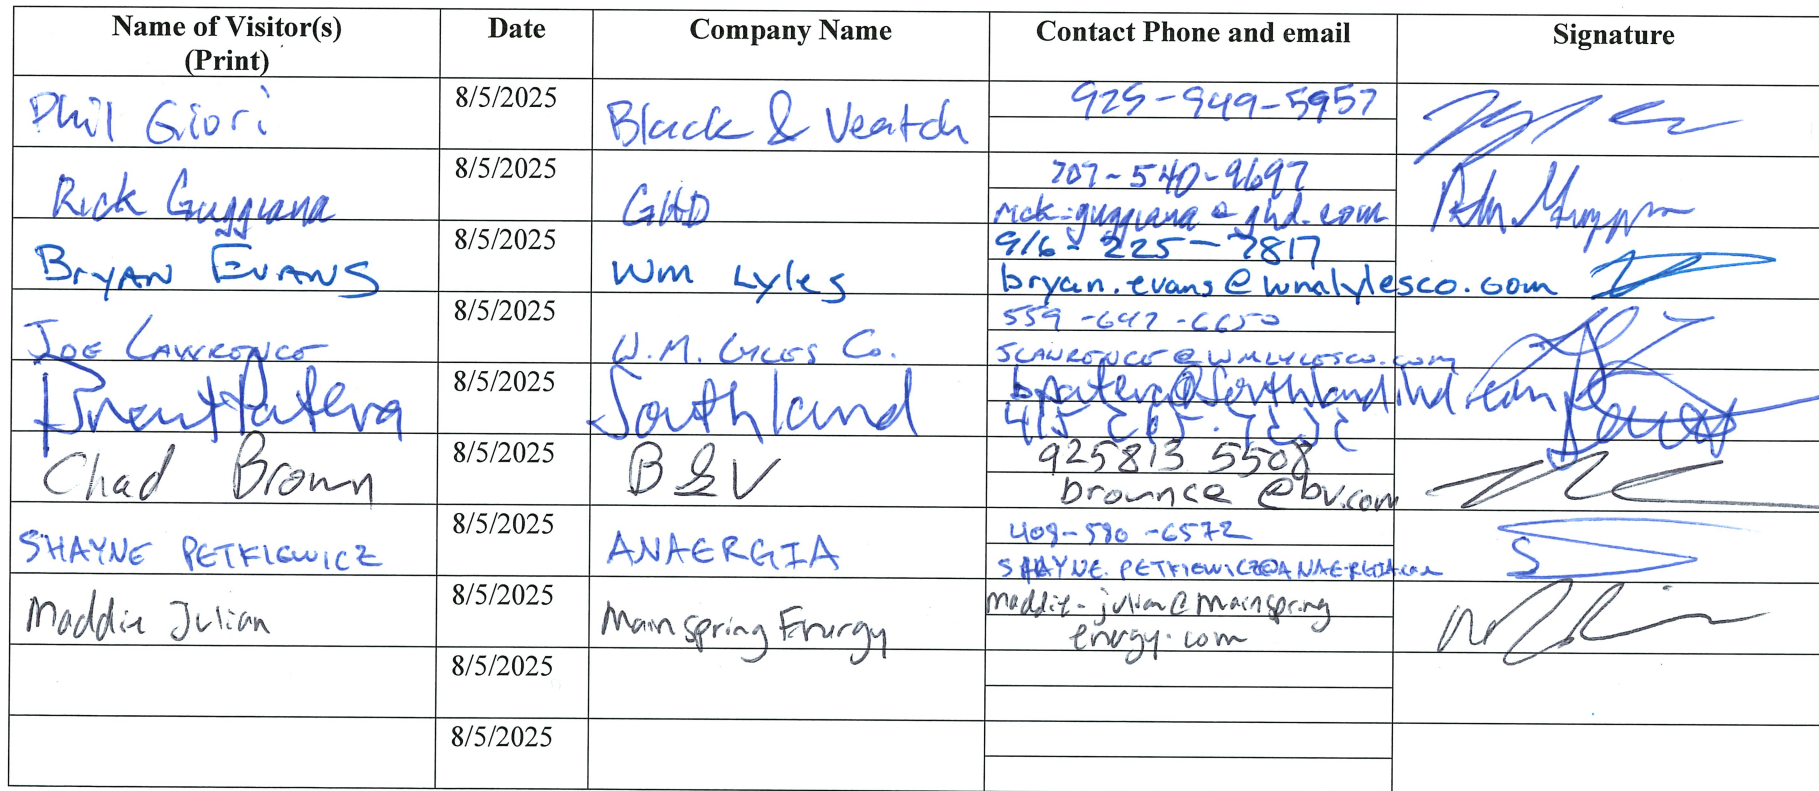 Name of Visitor(s) Date Company Name Contact Phone and email Signature
(Print)
Phil Giori 8/5/2025 Black & Veatch 925-949-5957
Rick Guggiana 8/5/2025 GHD 707-540-9697
rick.guggiana@ghd.com
Bryan Evans 8/5/2025 Wm Lyles 916-225-7817
bryan.evans@wmlylesco.com
Joe Lawrence 8/5/2025 W.M. Lyles Co. 559-647-6650
JLAWRENCE@WMLYLESCO.COM
Brent Patera 8/5/2025 Southland bpatera@southlandind.com
415
Chad Brown 8/5/2025 B&V 925813 5508
brownce@bv.com
SHAYNE PETKIEWICZ 8/5/2025 ANAERGIA 408-580-6572
SHAYNE.PETKIEWICZ@ANAERGIA.com
Maddie Julian 8/5/2025 Mainspring Energy maddie.julian@mainspring
energy.com
8/5/2025
8/5/2025